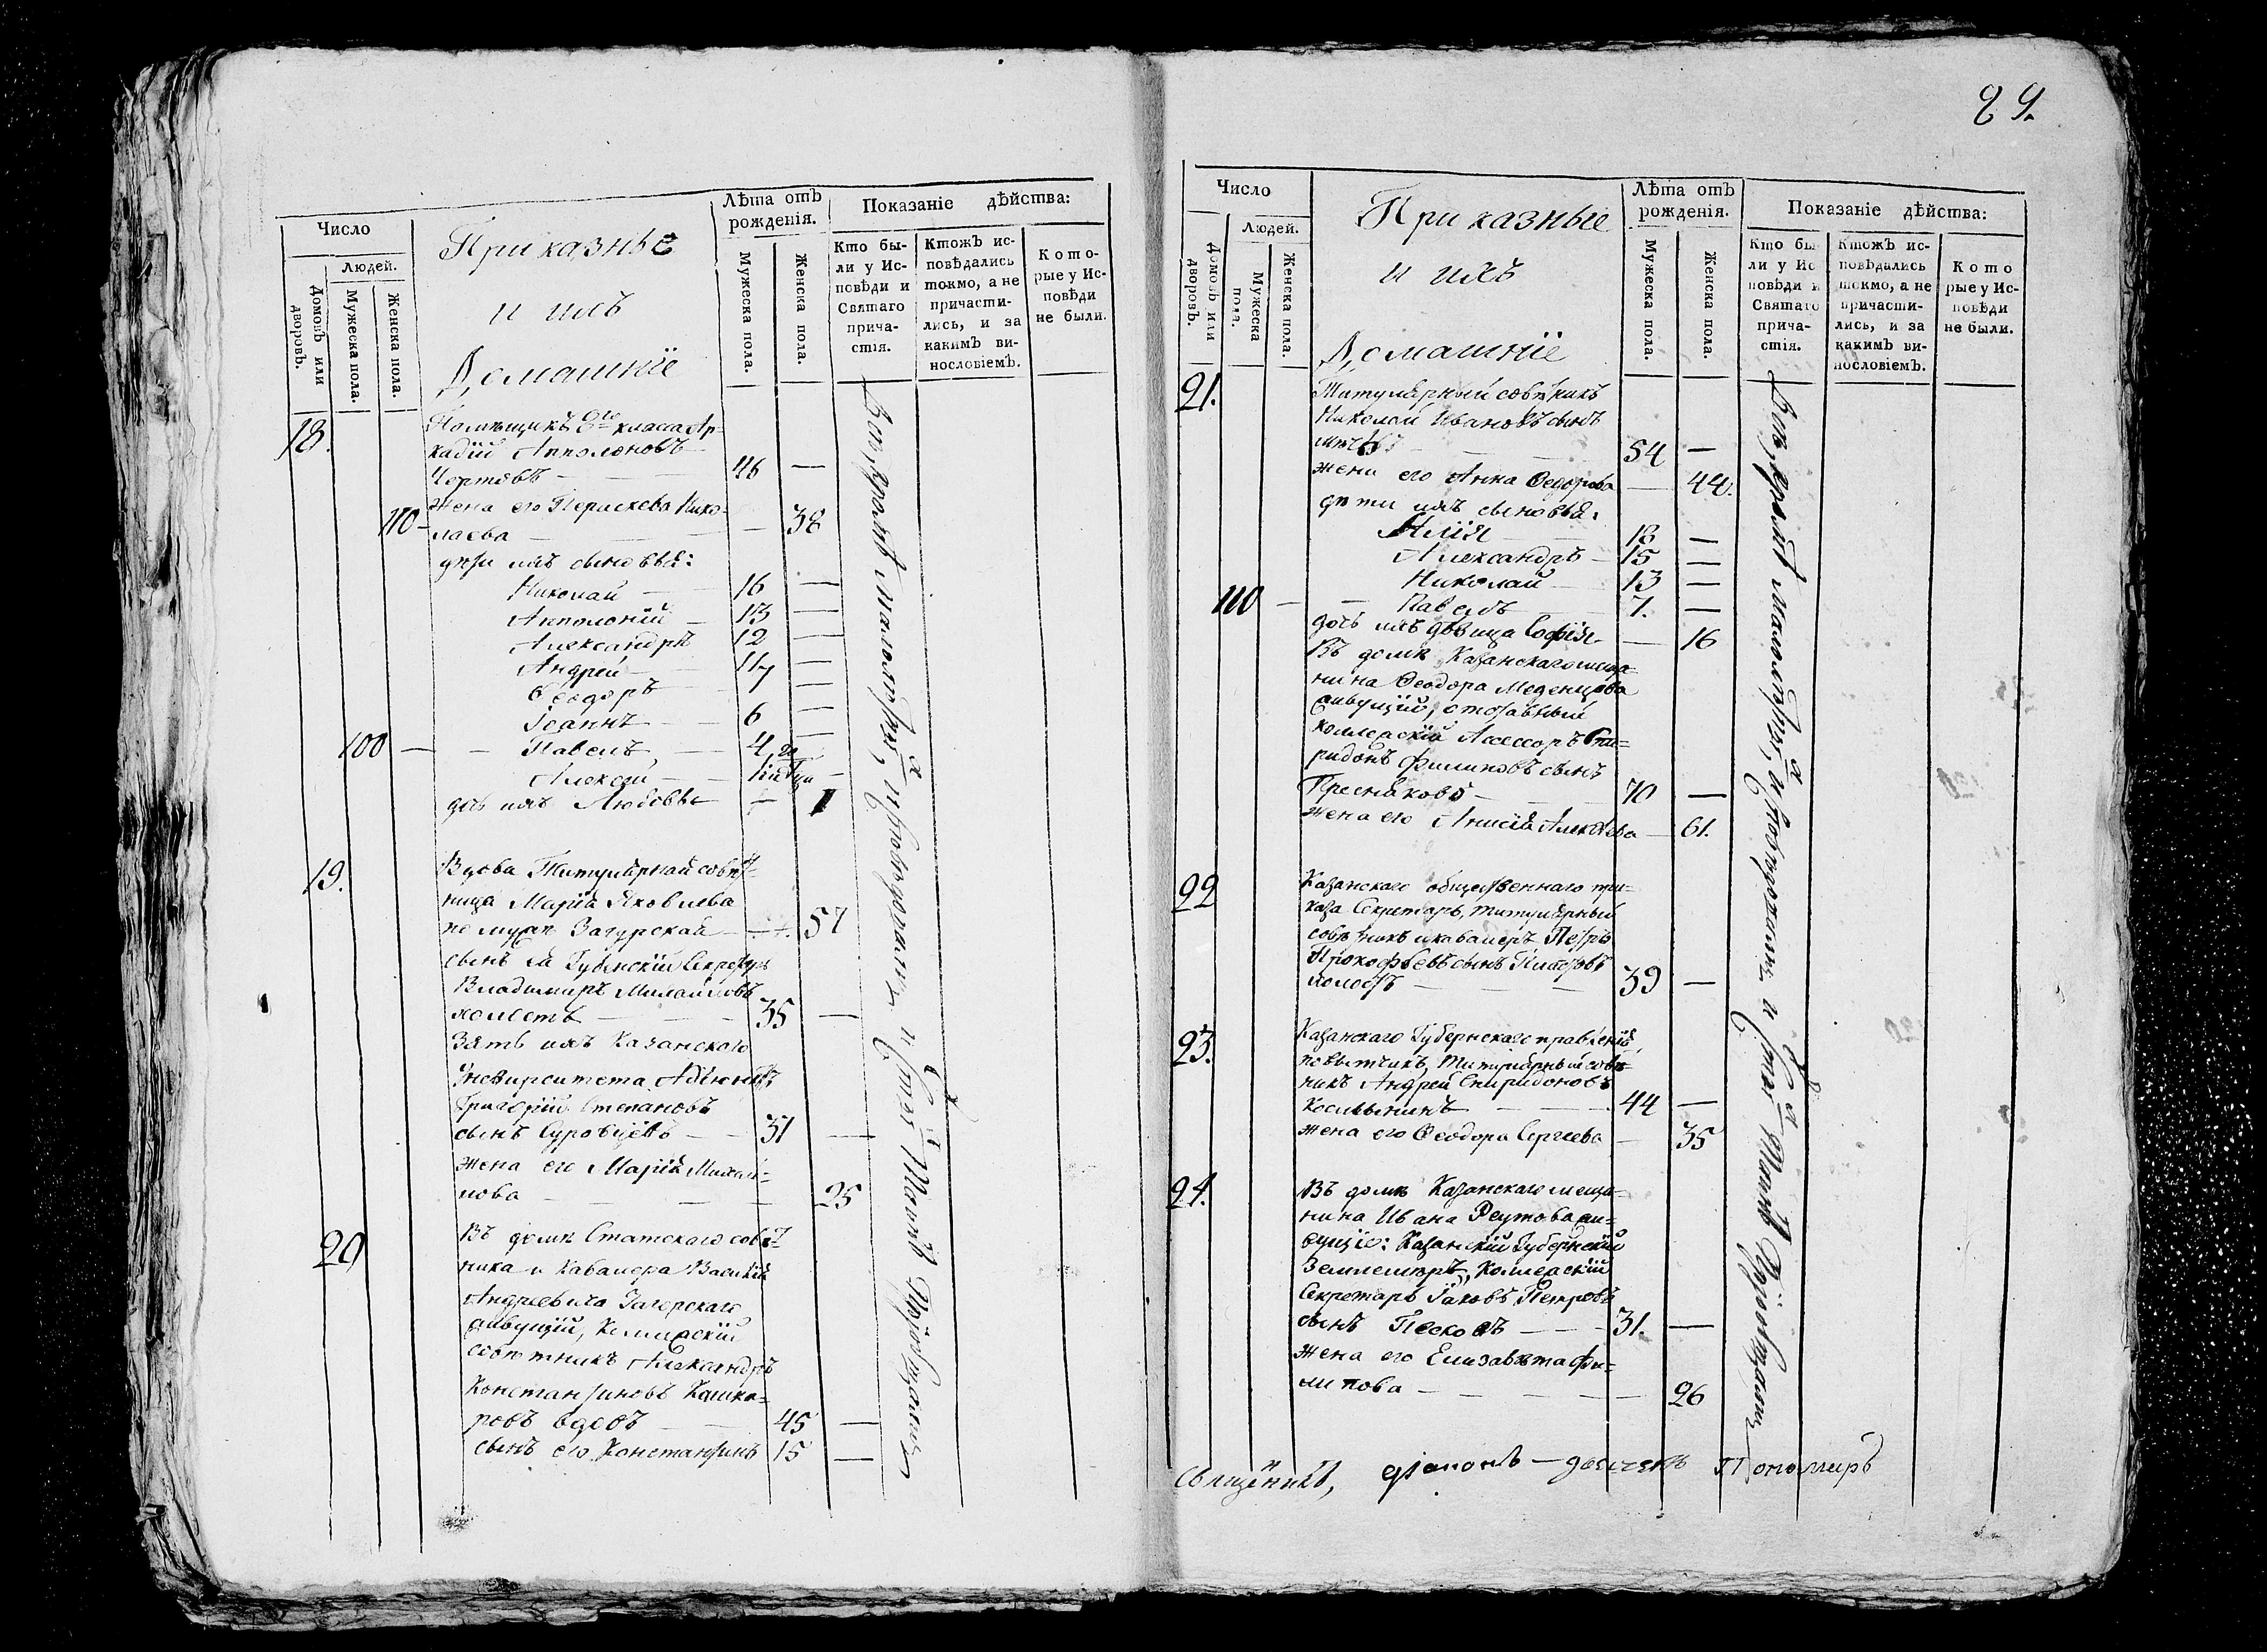 Число
Людей.
Домовъ или дворовъ.
Мужеска пола.
Женска пола.
Приказные
и ихъ
Домашнїе
Лѣта отъ
рожденія.
Мужеска пола.
Женска пола.
Показаніе дѣйства:
Кто бы-
ли у Ис-
повѣди и
Святаго
прича-
стія.
Ктожъ ис-
повѣдались
токмо, а не
причасти-
лись, и за
какимъ ви-
нословіемъ.
Кото-
рые у Ис-
повѣди
не были.
18. Помѣщикъ 8го класса Ар-
кадїй Апполоновъ
Чертовъ 46 —
Жена его Нико-
110 — лаева — 38
дѣти ихъ сыновья:
Николай — 16 —
Апполонїй — 13 —
Александръ 12 —
Андрей — 11 —
Ѳеодоръ 7 —
Іоаннъ — 6 —
100 — Павелъ — 4 —
Алексѣй —
дочь ихъ Любовь — 1
19. Вдова Титулярная совѣт-
ница Марїя Яковлева
по мужѣ Загурская — 57
сынъ ея Губернскїй Секретарь
Владимиръ Михайловъ
холостъ — 35 —
Зять ихъ Казанскаго
Университета Адъюнктъ
Григорїй Степановъ
сынъ Суровцевъ — 31 —
жена его Марїя Михай-
лова — 25
20 Въ домѣ Статскаго совѣт-
ника и Кавалера Василїя
Андреевича Загорскаго
живущїй, Коллежскїй
совѣтникъ Александръ
Константиновъ Кашка-
ровъ вдовъ — 45 —
сынъ его Константинъ 15 —
Всѣ, кромѣ малолѣтныхъ, исповѣдались и Святыхъ Таинъ Прїобщались
29.
Число
Людей.
Домовъ или дворовъ.
Мужеска пола.
Женска пола.
Приказные
и ихъ
Домашнїе
Лѣта отъ
рожденія.
Мужеска пола.
Женска пола.
Показаніе дѣйства:
Кто бы
ли у Ис
повѣди и
Святаго
прича-
стія.
Ктожъ ис-
повѣдались
токмо, а не
причасти-
лись, и за
какимъ ви-
нословіемъ.
Кото
рые у Ис-
повѣди
не были.
21. Титулярный совѣтникъ
Николай Ивановъ сынъ
54 —
жена его Анна Ѳедорова — 44.
дѣти ихъ сыновья:
Илїя 18 —
Александръ — 15 —
Николай 13 —
110 — Павелъ 7. —
дочь ихъ дѣвица Софїя — 16
Въ домѣ Казанскаго меща-
нина Ѳеодора Меденцова
живущїй, отставный
коллежскїй Ассессоръ Спи-
ридонъ Филиповъ сынъ
Пресняковъ — 70 —
жена его Анисїя Алексѣева — 61.
22 Казанскаго общественнаго при-
каза Секретарь, Титулярный
совѣтникъ и кавалеръ Петръ
Прокофьевъ сынъ Платоновъ
холостъ — 39 —
23. Казанскаго Губернскаго правленїя
повытчикъ, Титулярный совѣт-
никъ Андрей Спиридоновъ
Космынинъ — 44 —
жена его Ѳеодора Сергеева — 35
24. Въ домѣ Казанскаго меща-
нина Ивана Реутова жи-
вущїе: Казанскїй Губернскїй
Землемѣръ, Коллежскїй
Секретарь Іаковъ Петровъ
сынъ Песковъ — 31. —
жена его Елизавета Фи-
липова — 26
Всѣ, кромѣ малолѣтныхъ, исповѣдались и Святыхъ Таинъ Прїобщались
Священникъ, дїаконъ — дьячекъ Пономарь